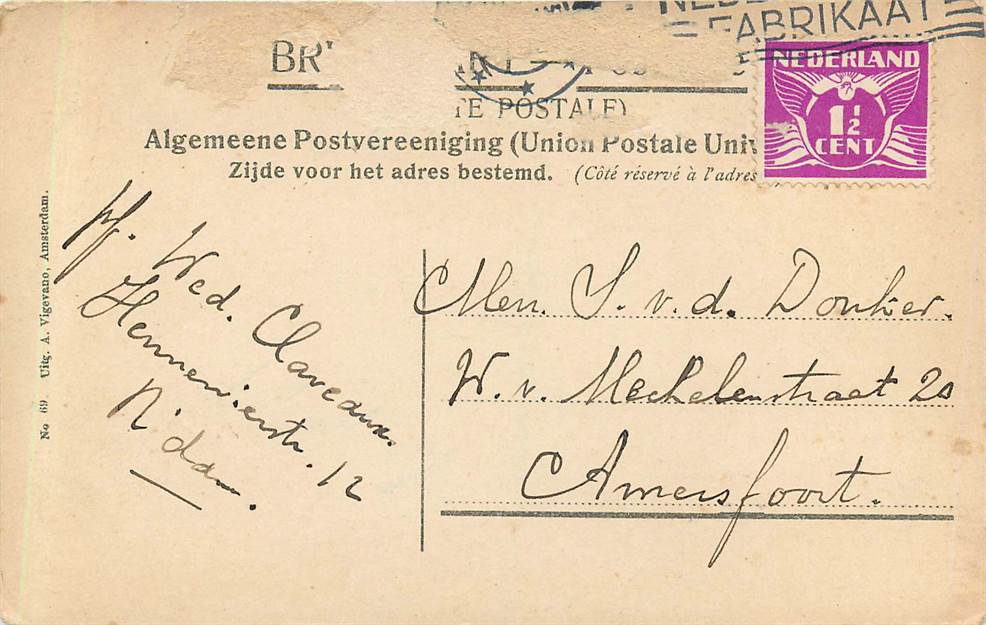 NEDE
FABRIKAAT
BR
POS
TE POSTALE)
Algemeene Postvereeniging (Union Postale Univ
Zijde voor het adres bestemd. (Côté réservé à l'adres
NEDERLAND
1½
CENT
No 69 Uitg. A. Vigevano, Amsterdam.
Wed.
12
dam.
Men. S. v. d. Donker.
W. v. Mechelenstraat 20
Amersfoort.